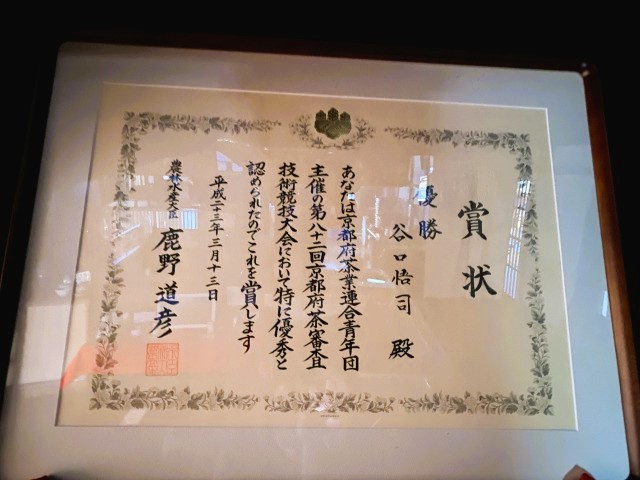 賞状
優勝
谷口悟司 殿
あなたは京都府茶業連合青年団
主催の第八十二回京都府茶審査
技術競技大会において特に優秀と
認められたのでこれを賞します
平成二十三年三月十三日
農林水産大臣 鹿野道彦